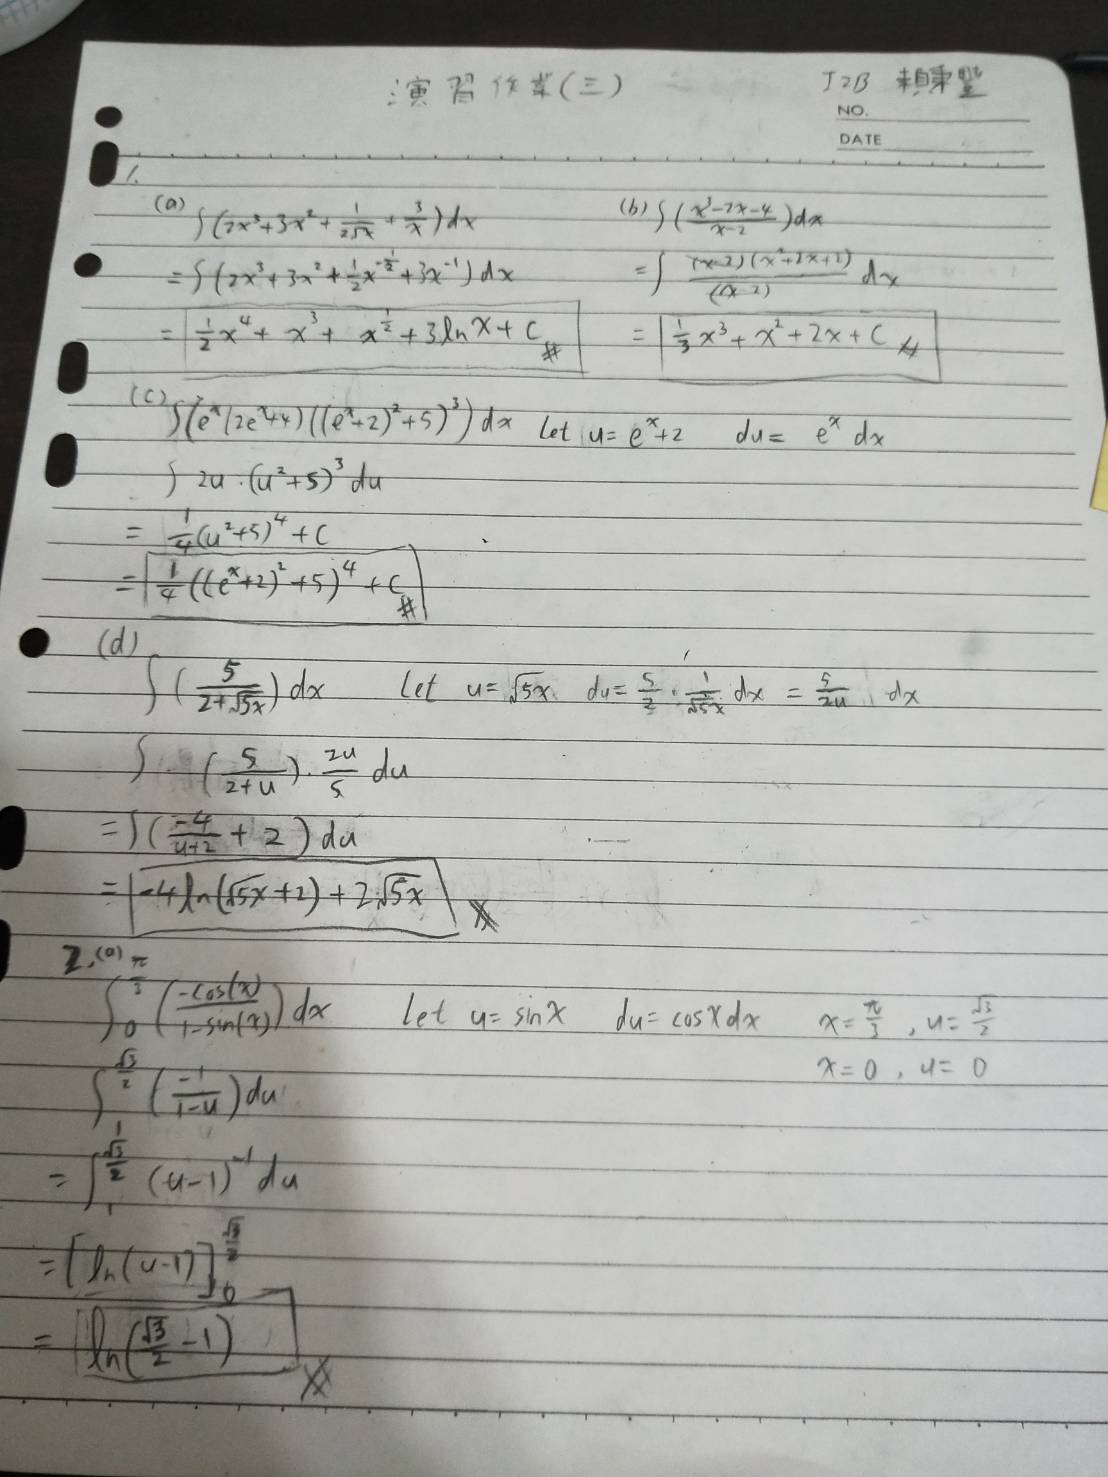 演習作業(三)
J2B 賴秉豐
NO.
DATE
1.
(a) ∫(2x³+3x²+1/(2√x)+3/x)dx
(b) ∫((x³-2x-4)/(x-2))dx
=∫(2x³+3x²+½x^(-1/2)+3x⁻¹)dx
=∫ ((x-2)(x²+2x+2))/((x-2)) dx
= ½x⁴+x³+x^(1/2)+3lnx+C #
= ⅓x³+x²+2x+C #
(c) ∫(eˣ(2eˣ+4)((eˣ+2)²+5)³)dx Let u=eˣ+2 du= eˣ dx
∫ 2u·(u²+5)³du
= ¼(u²+5)⁴+C
= ¼((eˣ+2)²+5)⁴+C #
(d)
∫(5/(2+√5x))dx Let u=√5x du=5/2·1/√5x dx = 5/2u dx
∫(5/(2+u))·2u/5 du
=∫(-4/(u+2)+2)du
= -4ln(√5x+2)+2√5x
2.(a)
∫₀^(π/3) (-cos(x)/(1-sin(x)))dx Let u=sinx du=cosxdx x=π/3, u=√3/2
x=0, u=0
∫₁^(√3/2) (-1/(1-u))du
=∫₁^(√3/2) (u-1)⁻¹du
=[ln(u-1)]₀^(√3/2)
= ln(√3/2-1)